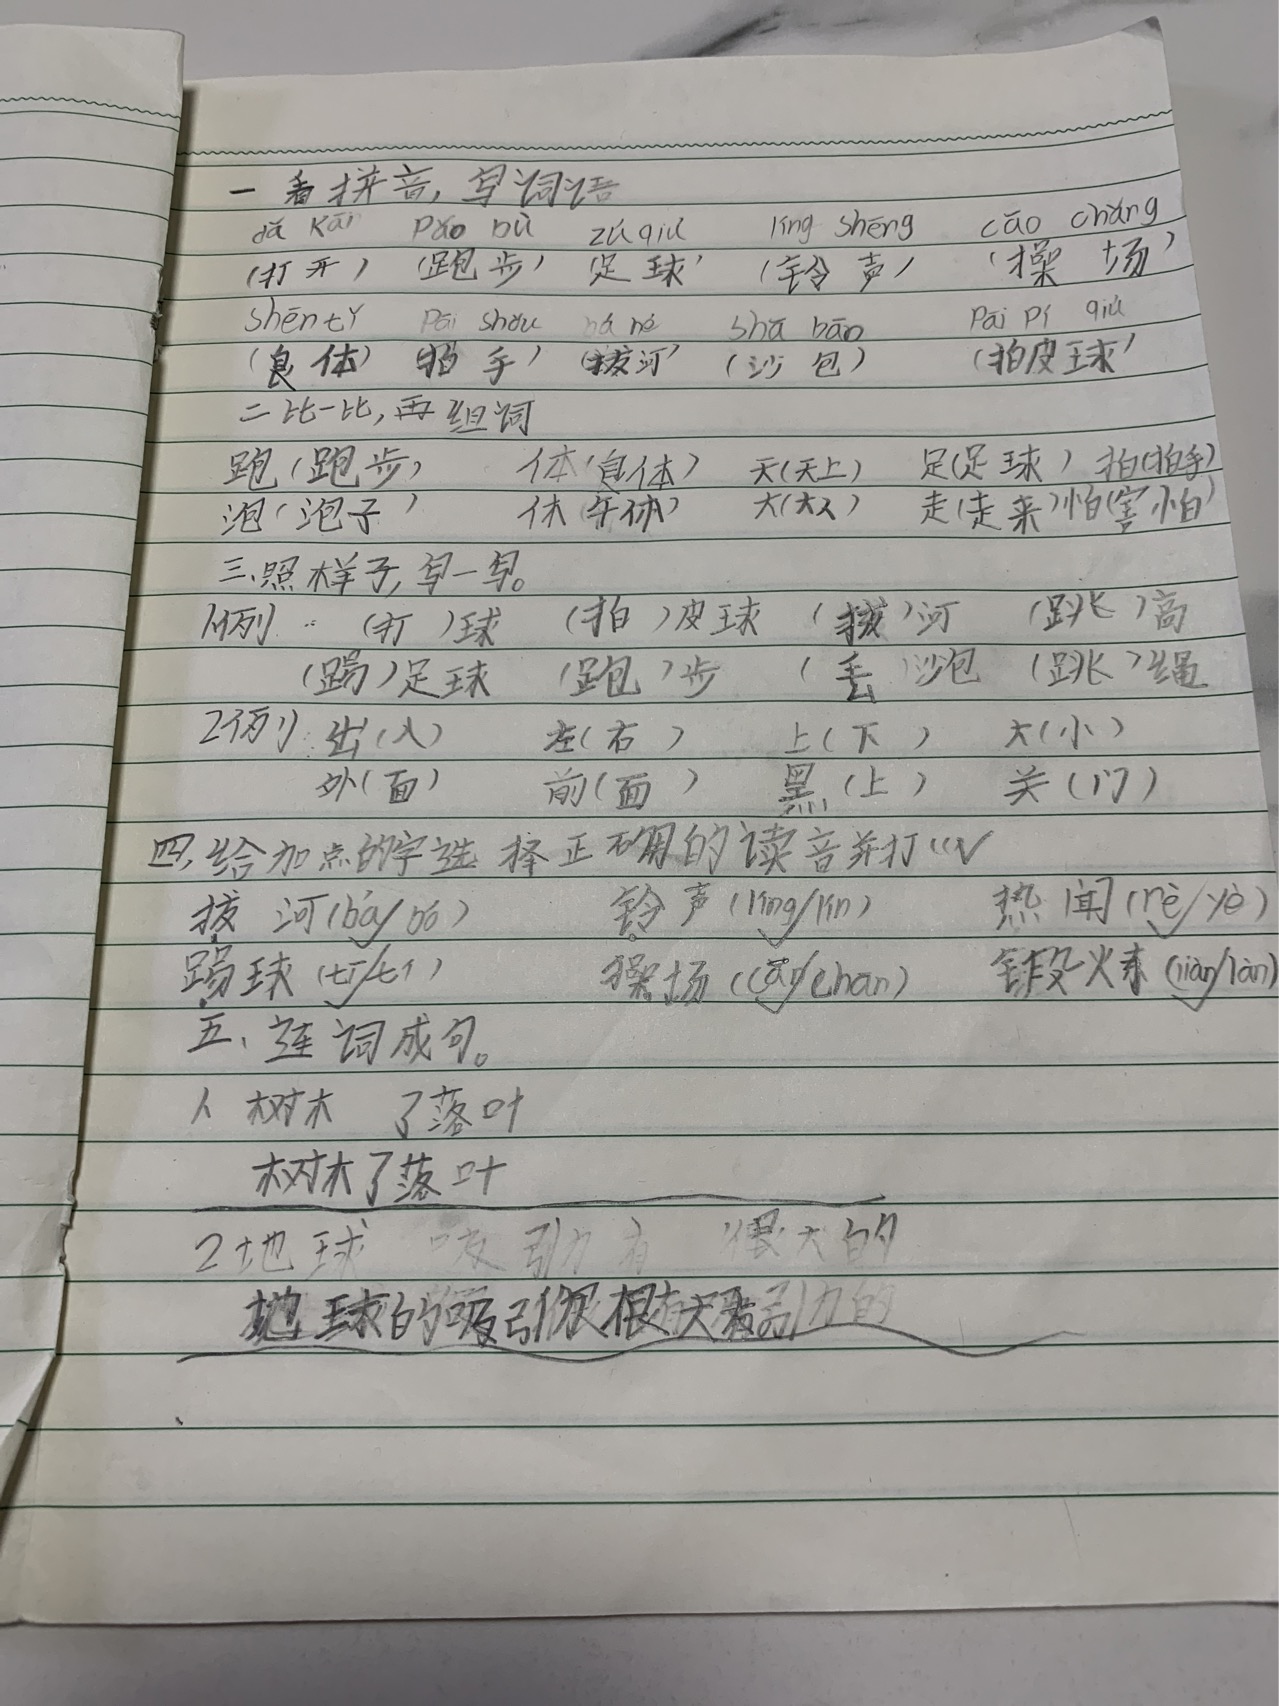 一 看拼音，写词语
dǎ kāi pǎo bù zú qiú líng shēng cāo chǎng
(打开) (跑步) 足球 (铃声) (操场)
shēn tǐ pāi shǒu bá hé shā bāo pāi pí qiú
(身体) 拍手) (拔河) (沙包) (拍皮球)
二 比一比，再组词
跑(跑步) 体(身体) 天(天上) 足(足球) 拍(拍手)
泡(泡子) 休(午休) 大(大人) 走(走来) 怕(害怕)
三、照样子，写一写。
1例 (打)球 (拍)皮球 (拔)河 (跳)高
(踢)足球 (跑)步 (丢)沙包 (跳)绳
2例 出(入) 左(右) 上(下) 大(小)
外(面) 前(面) 黑(上) 关(门)
四、给加点的字选择正确的读音并打“√
拔河(bá/bó) 铃声(líng/lín) 热闹(rè/yè)
踢球(tī/tí) 操场(cāo/chan) 锻火(liàn/làn)
五、连词成句。
1 树木 了落叶
树木了落叶
2 地球 吸引力有 很大的
地球的吸引很大